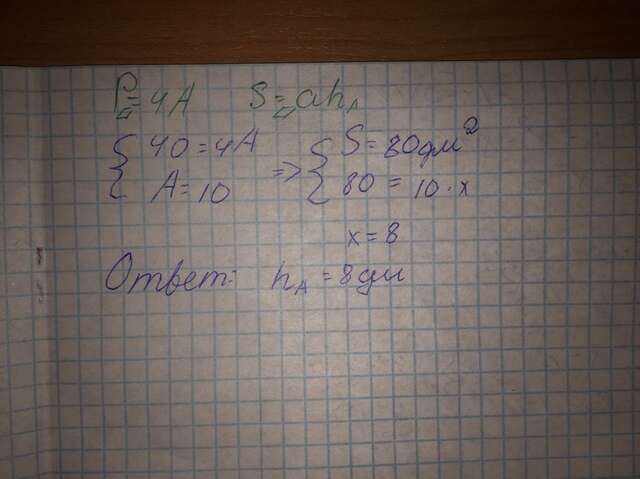 P▱=4A S▱=ah_A
{40=4A => {S=80дм²
A=10 80=10·x
x=8
Ответ: h_A=8дм